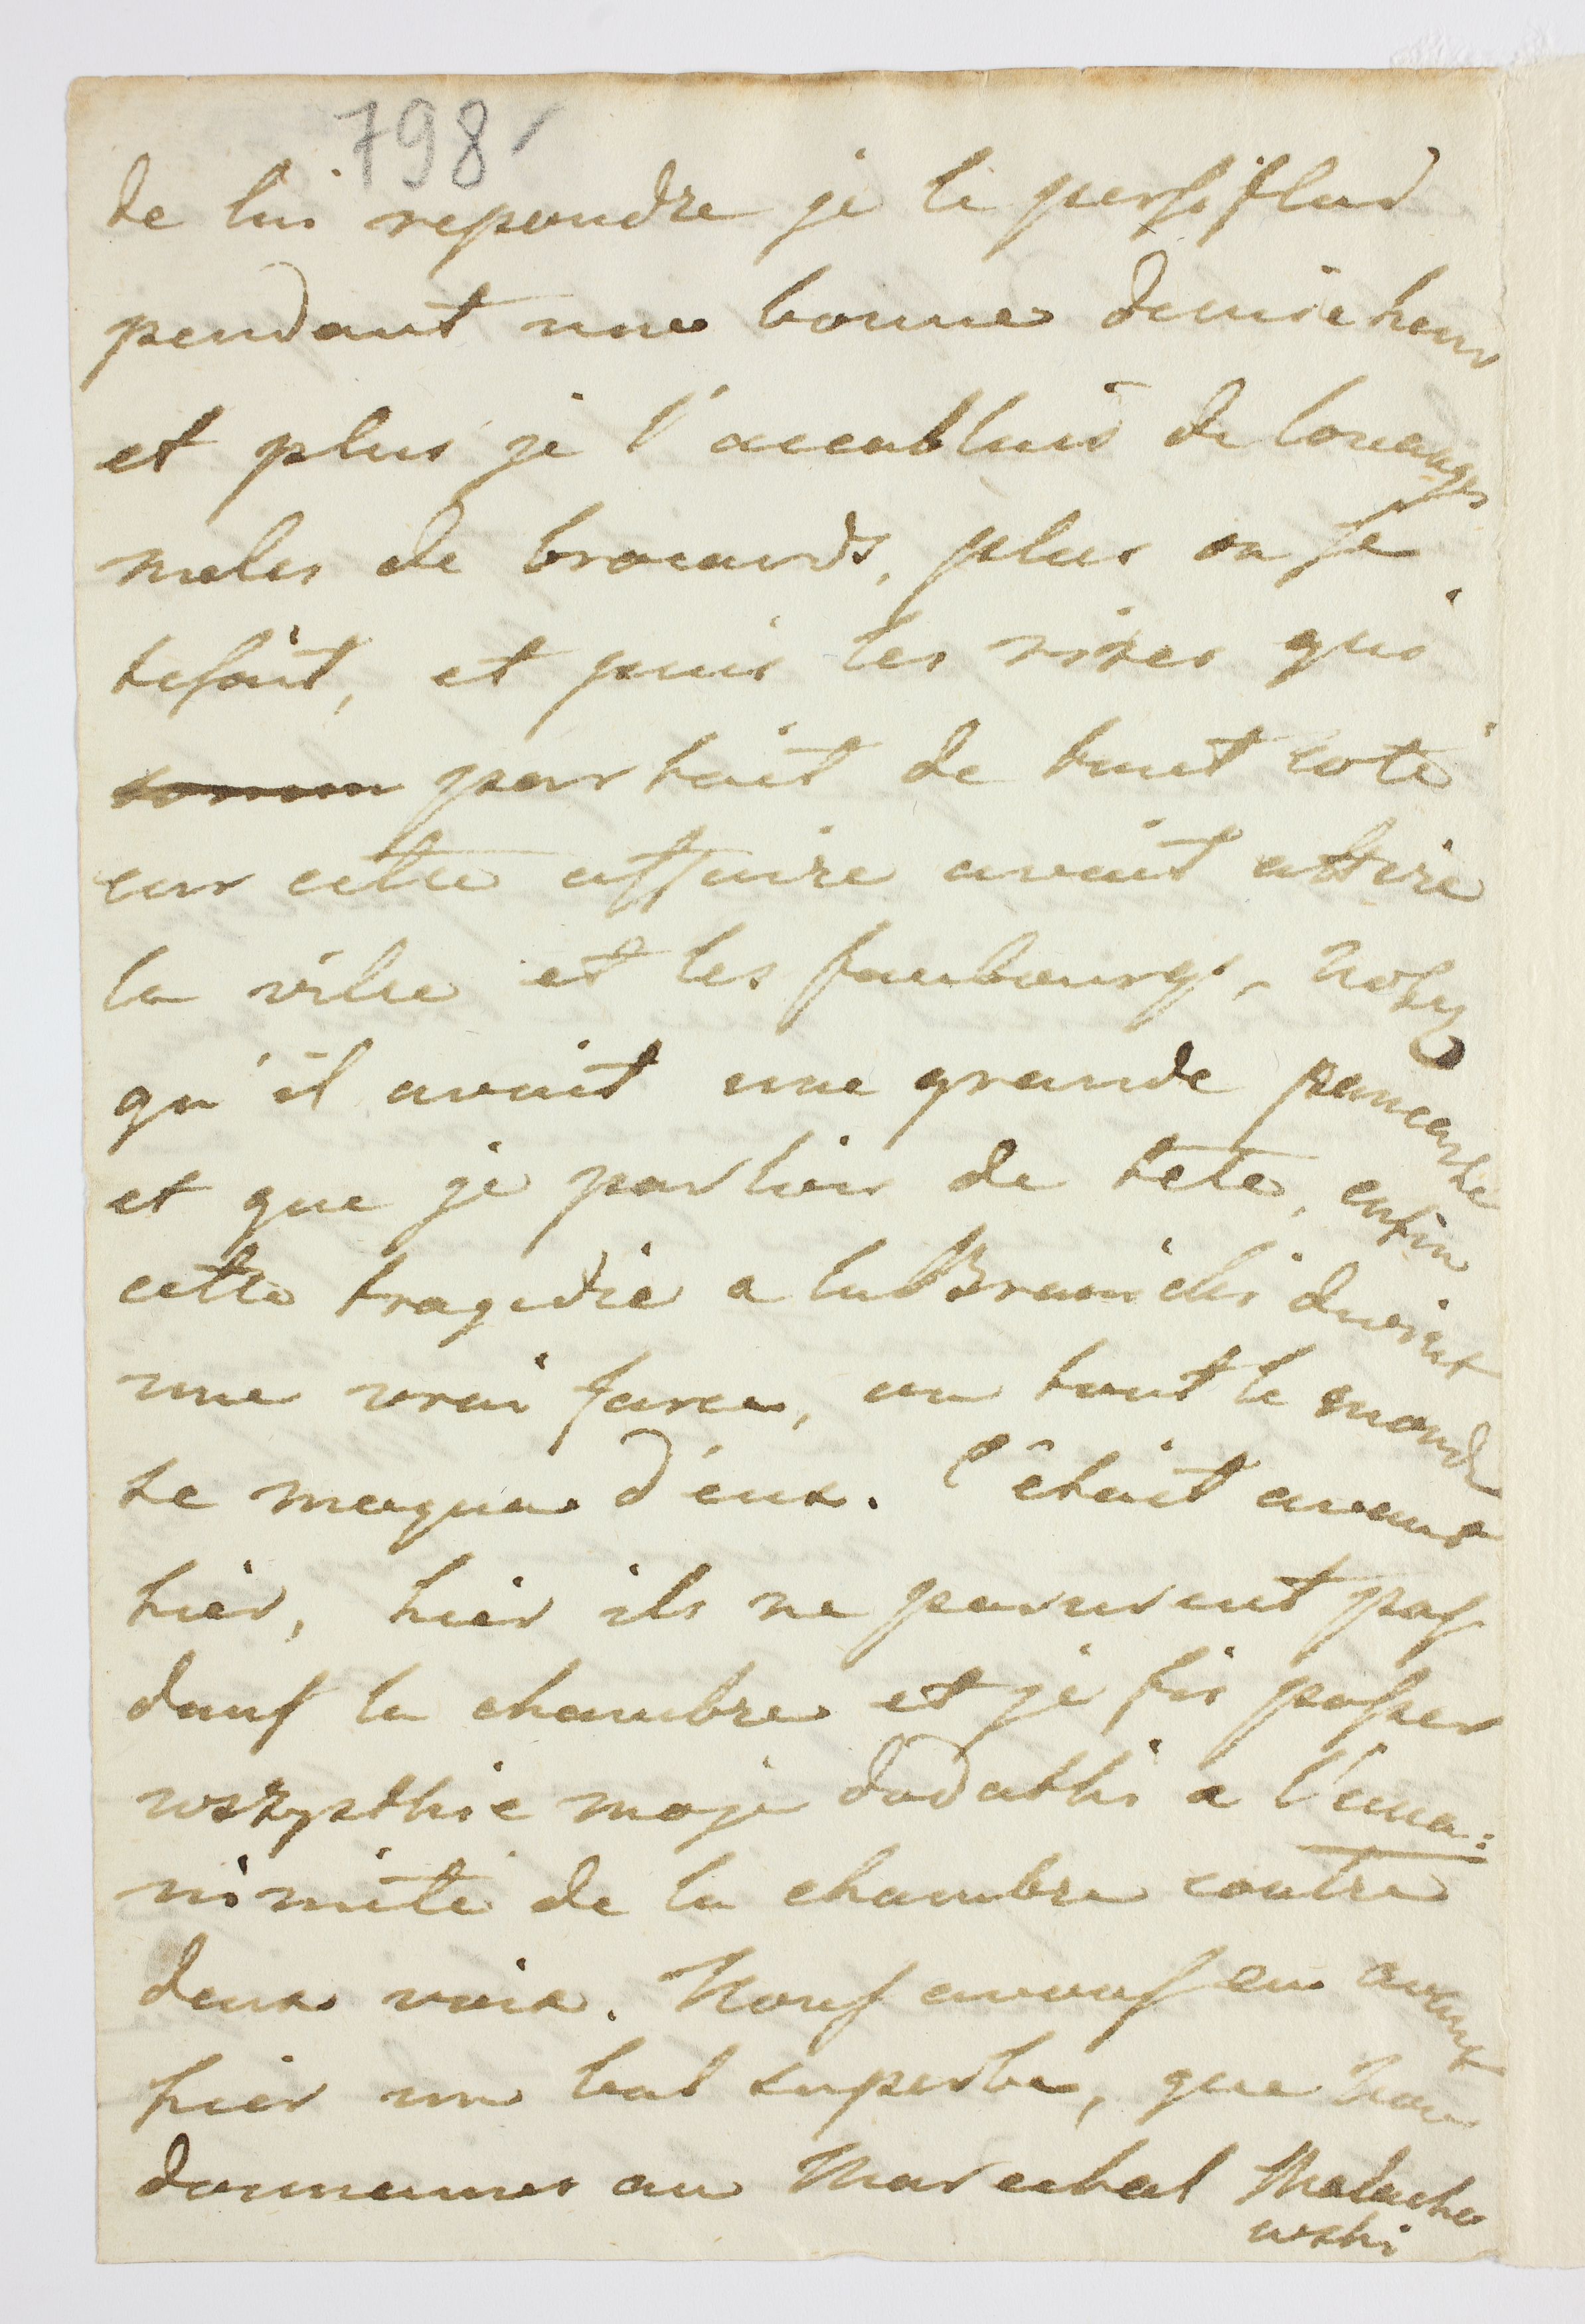 798
de lui repondre je le persiflad
pendant une bonne demie heur
et plus je l'accabluis de louanges
meles de brocards, plus on se
tesoit, et puis les rires qui
partait de tout coté
car cette affaire avait attiré
la ville et les faubourgs,
qu'il avait une grande pancarte
et que je parlois de tete, enfin
cette tragedie a la Branicki devient
une vrai farce, ou tout le monde
se moqua d'eux. C'étoit avant
hier, hier ils ne parurent pas
dans la chambre et je fis passer
wszystkie moje dodatki a l'una:
nimité de la chambre contre
deux voix. Nous avons eu avant
hier un bal superbe, que nou
donnames au Marechal Malacho
wski